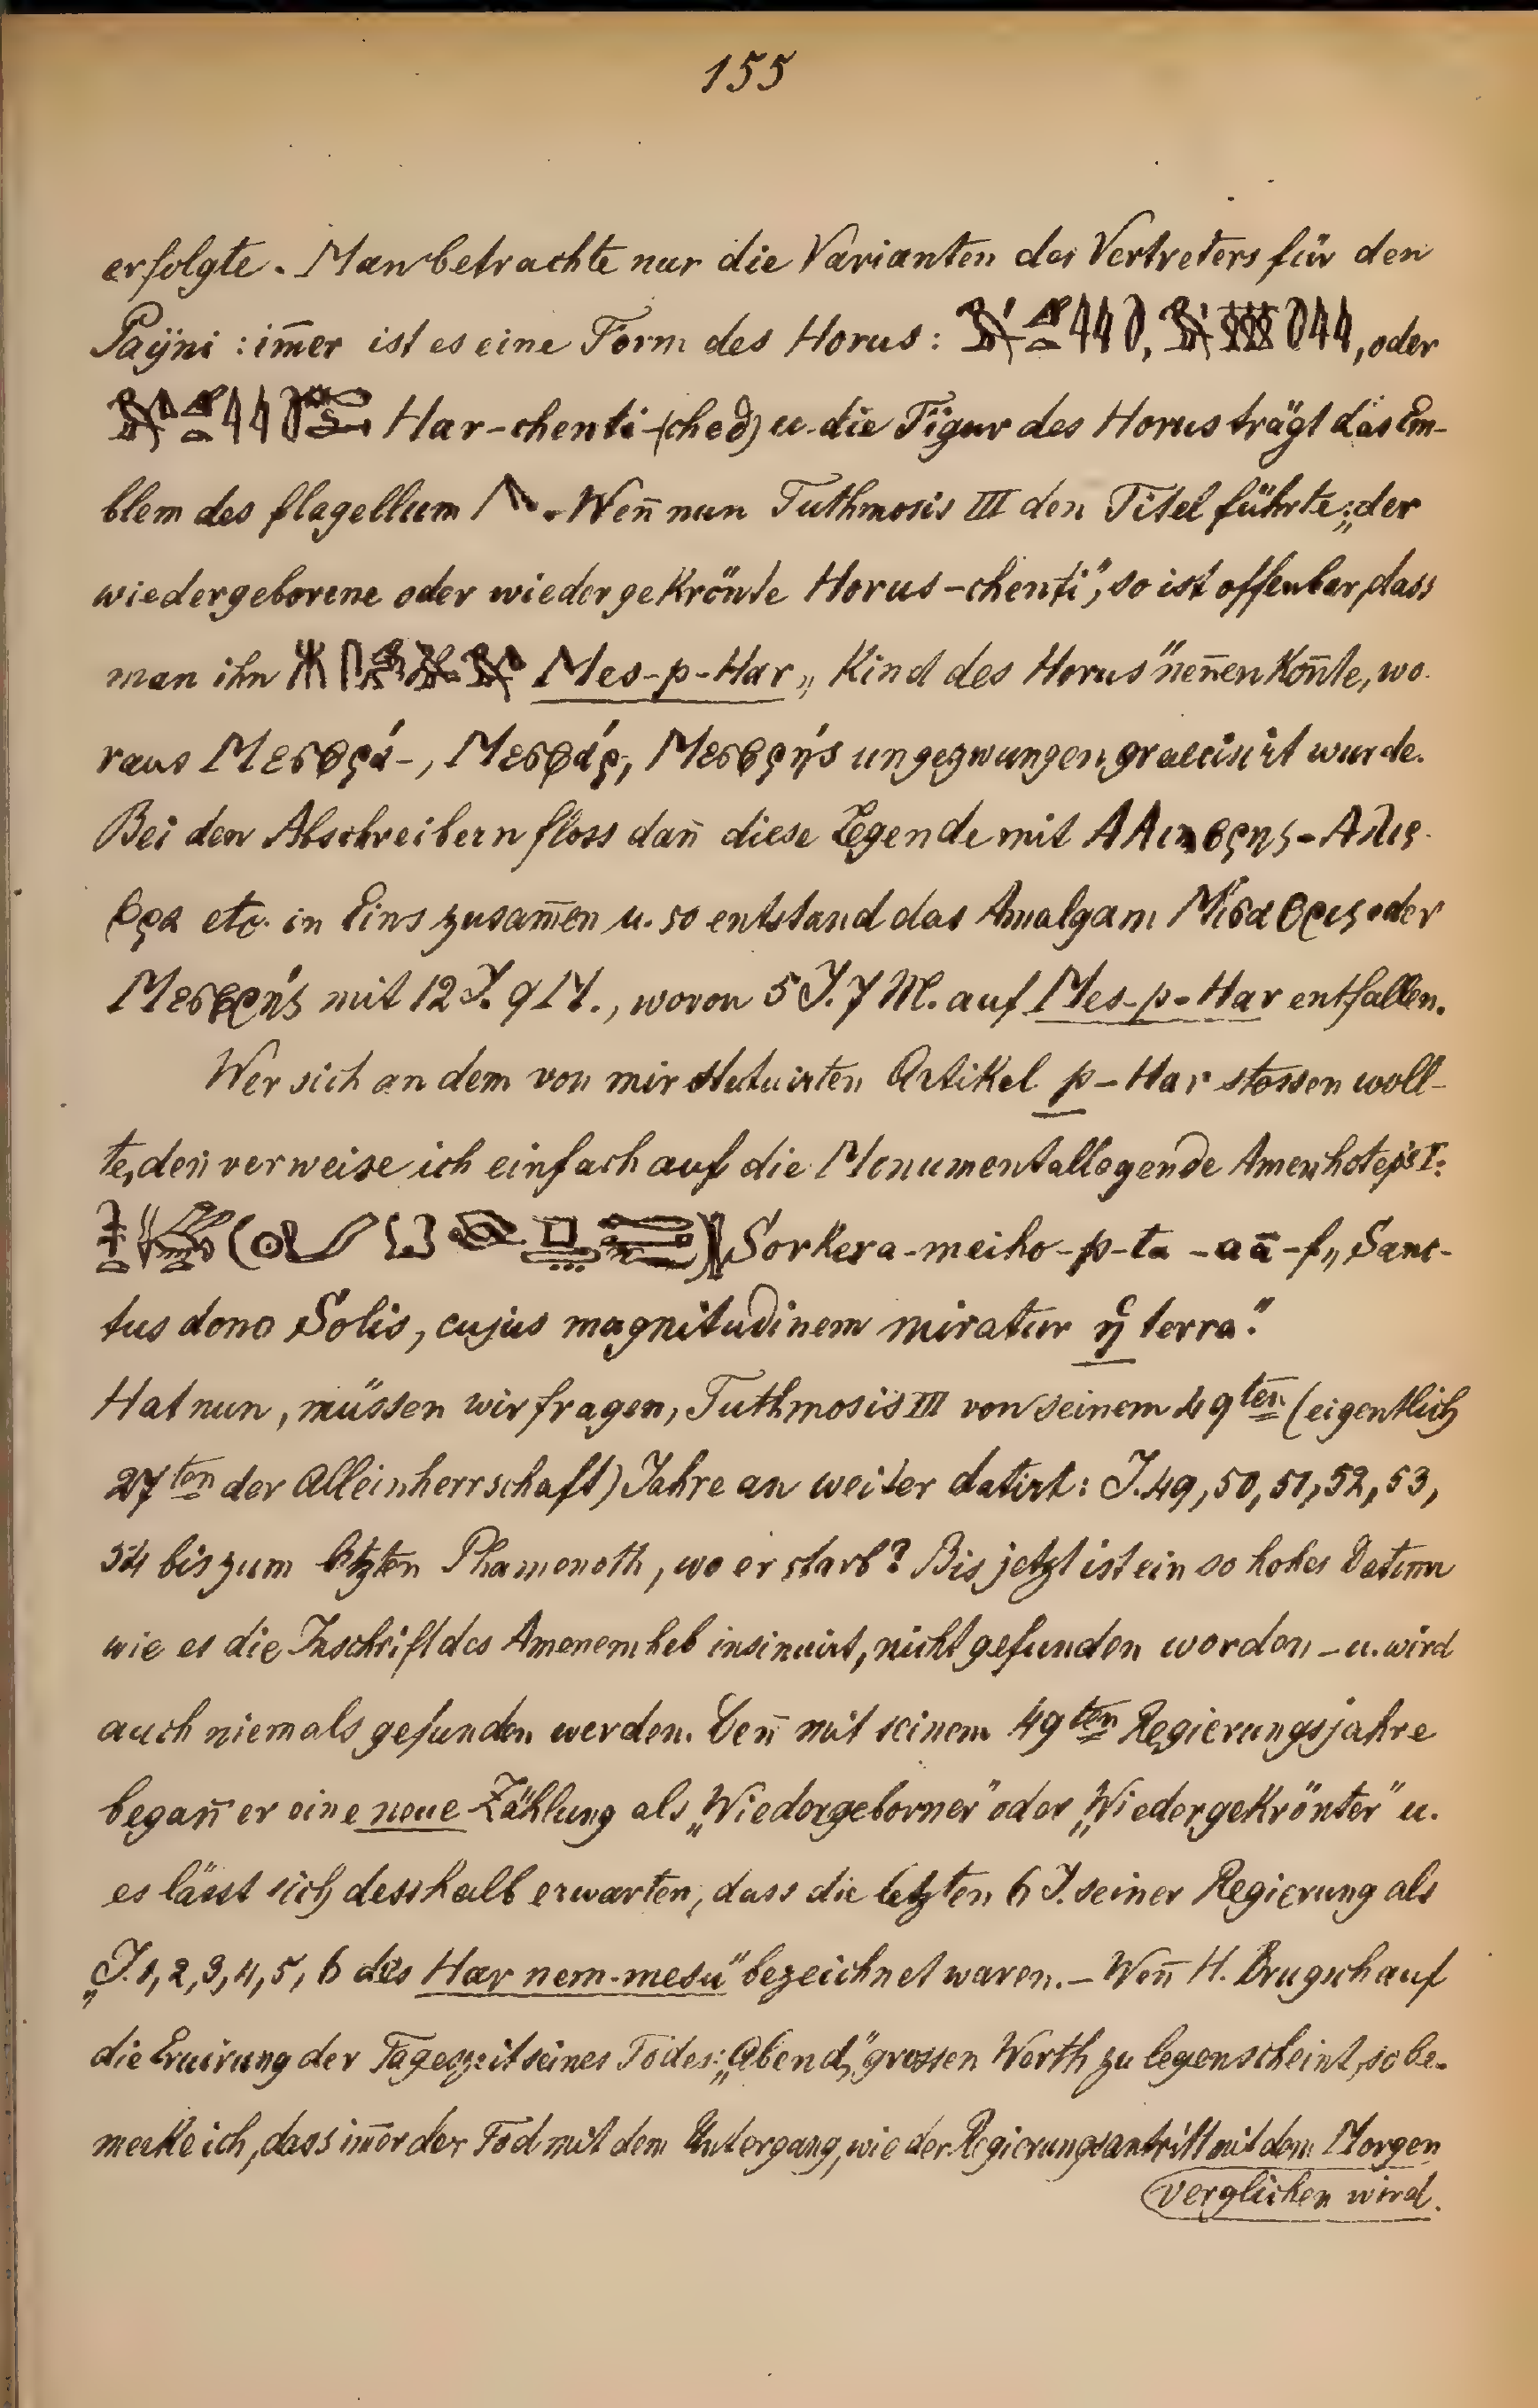 155
erfolgte. Man betrachte nur die Varianten des Vertreters für den
Paÿni: im̄er ist es eine Form des Horus: , , oder
Har-chenti-(ched) u. die Figur des Horus trägt das Em-
blem des flagellum . Wen̄ nun Tuthmosis III den Titel führte: „der
wiedergeborene oder wiedergekrönte Horus-chenti“, so ist offenbar, dass
man ihn Mes-p-Har „Kind des Horus“ nen̄en kon̄te, wo-
raus Μεσφρά-, Μεσφάρ, Μεσφρής ungezwungen graecisirt wurde.
Bei den Abschreibern floss dan̄ diese Legende mit -Αλισ-
φρα etc. in Eins zusam̄en u. so entstand das Amalgam Μισαφρις oder
Μεσφρής mit 12 J. 9 M., wovon 5 J. 7 M. auf Mes-p-Har entfallen.
Wer sich an dem von mir statuirten Artikel p-Har stossen woll-
te, den̄ verweise ich einfach auf die Monumentallegende Amenhotep's I:
Sorkera-meiho-p-ta-aā-f „Sanc-
tus dono Solis, cujus magnitudinem miratur ἡ terra“.
Hat nun, müssen wir fragen, Tuthmosis III von seinem 49ten (eigentlich
27ten der Alleinherrschaft) Jahre an weiter datirt: J. 49, 50, 51, 52, 53,
54 bis zum letzten Phamenoth, wo er starb? Bis jetzt ist ein so hohes Datum
wie es die Inschrift des Amenemheb insinuirt, nicht gefunden worden – u. wird
auch niemals gefunden werden. Den̄ mit seinem 49ten Regierungsjahre
began̄ er eine neue Zählung als „Wiedergeborner“ oder „Wiedergekrönter“ u.
es lässt sich desshalb erwarten, dass die letzten 6 J. seiner Regierung als
„J. 1, 2, 3, 4, 5, 6 des Har nem-mesu“ bezeichnet waren. – Wen̄ H. Brugsch auf
die Eruirung der Tageszeit seines Todes: „Abend“, grossen Werth zu legen scheint, so be-
merke ich, dass im̄er der Tod mit dem Untergang, wie der Regierungsantritt mit dem Morgen
verglichen wird.